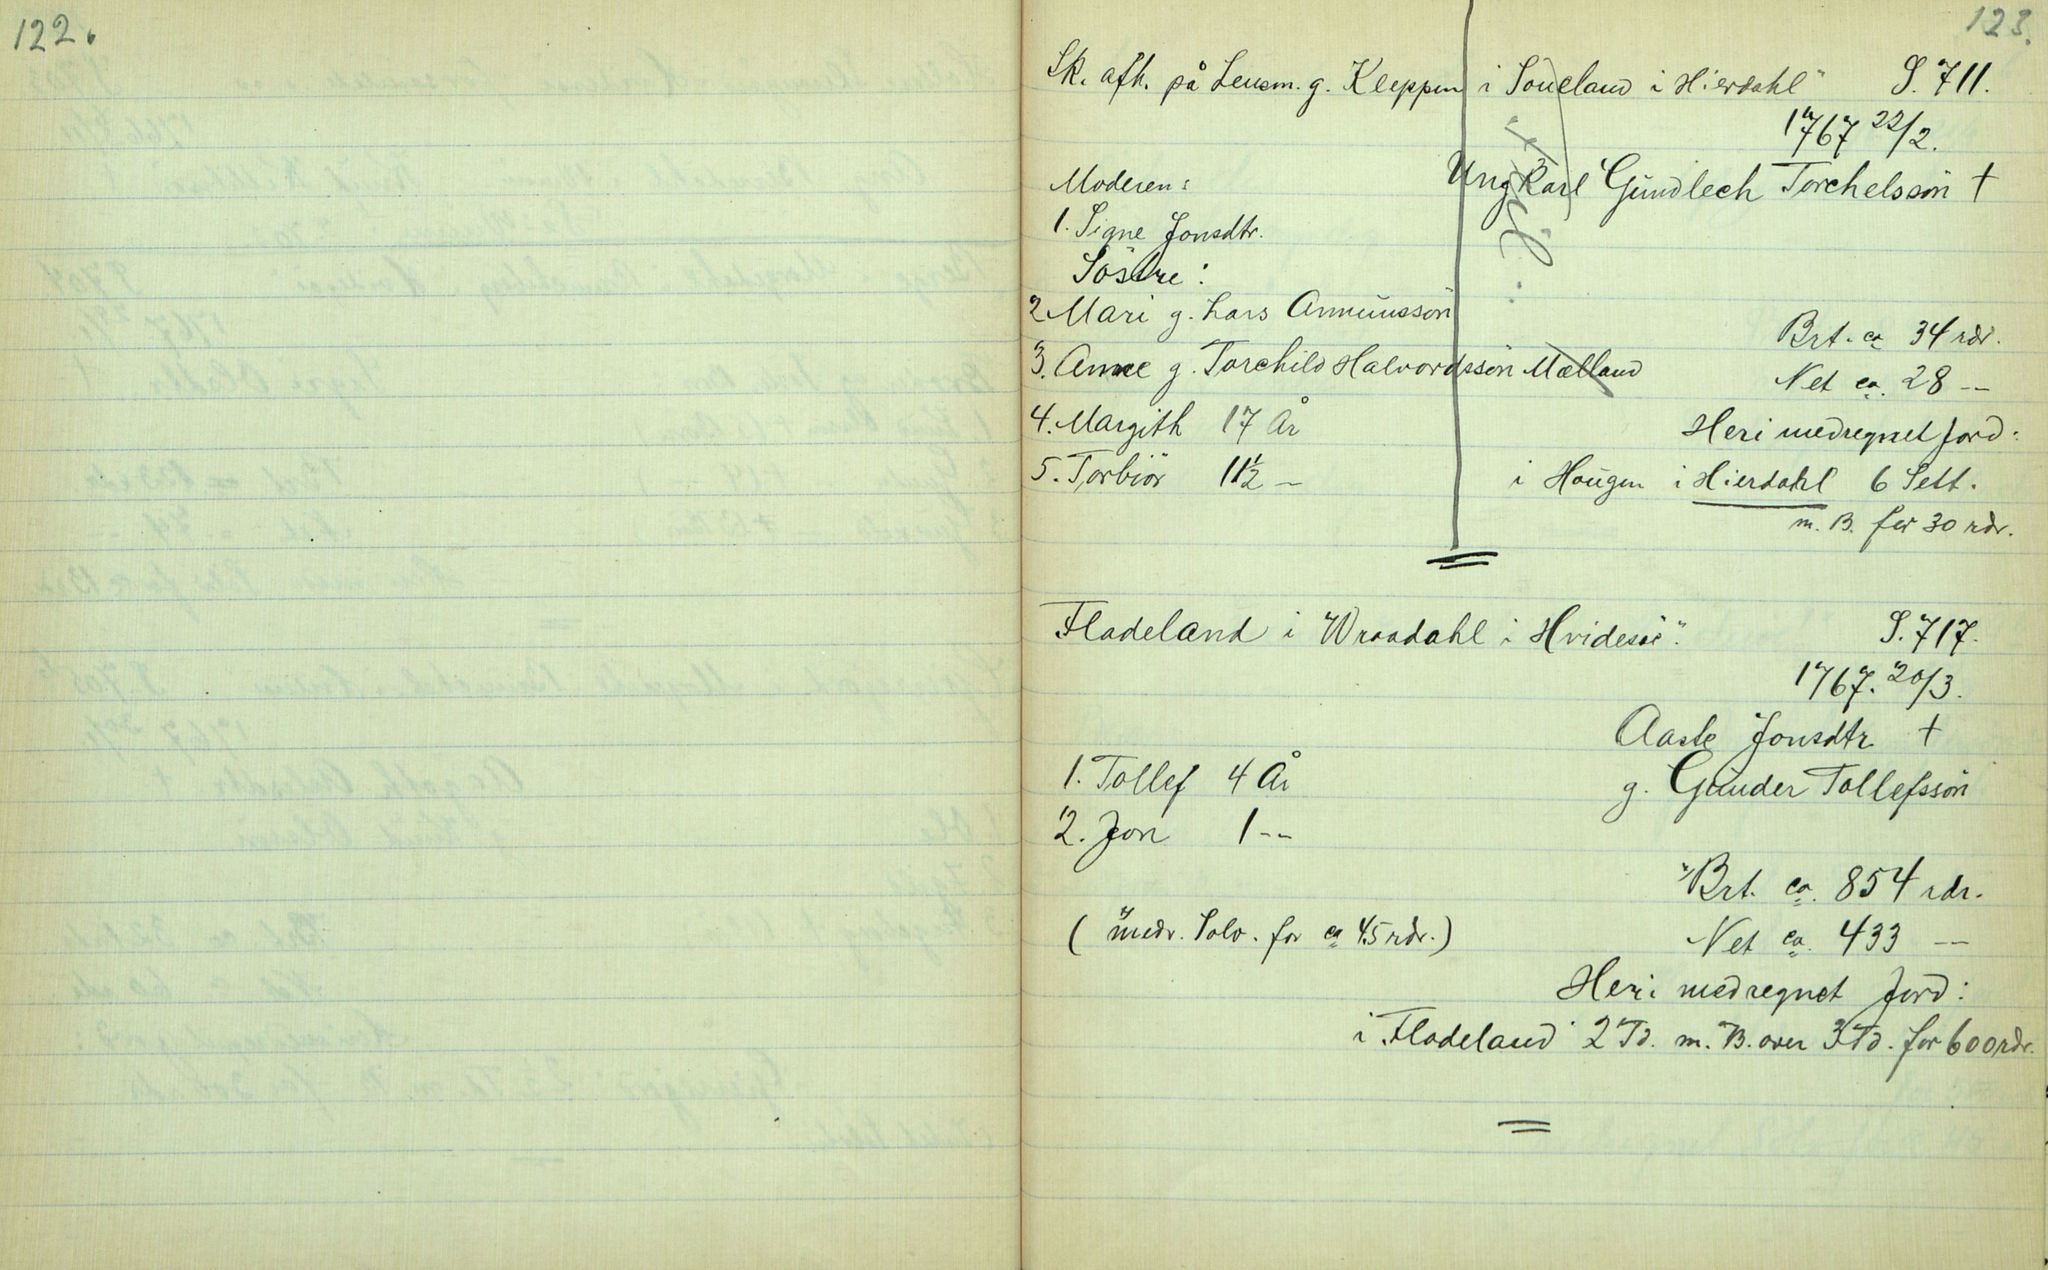 122.
123.
Sk. afh. på Lensm. g. Kleppen i Soueland i Hierdahl" S. 711.
1767 22/2.
Moderen: Ungkarl Gundlech Torchelssøn †
1. Signe Jonsdtr.
Söstre:
2 Mari g. Lars Anmunssön
Brt. ca 34 rdr.
3. Anne g. Torchild Halvordssön Mælland
Net ca. 28 --
4. Margith 17 År
Heri medregnet Jord:
5. Torbiör 11½ -
i Hougen i Hierdahl 6 Sett.
m. B. for 30 rdr.
Fladeland i Wraadahl i Hvidesöe". S. 717.
1767. 20/3.
Aaste Jonsdtr †
1. Tollef 4 År
g. Gunder Tollefssön
2. Jon 1 --
Brt. ca. 854 rdr.
(medr. Sölv. for ca 45 rdr.)
Net ca. 433 --
Heri medregnet Jord:
i Fladeland 2 Td. m. B. over 3 Td. for 600 rdr.